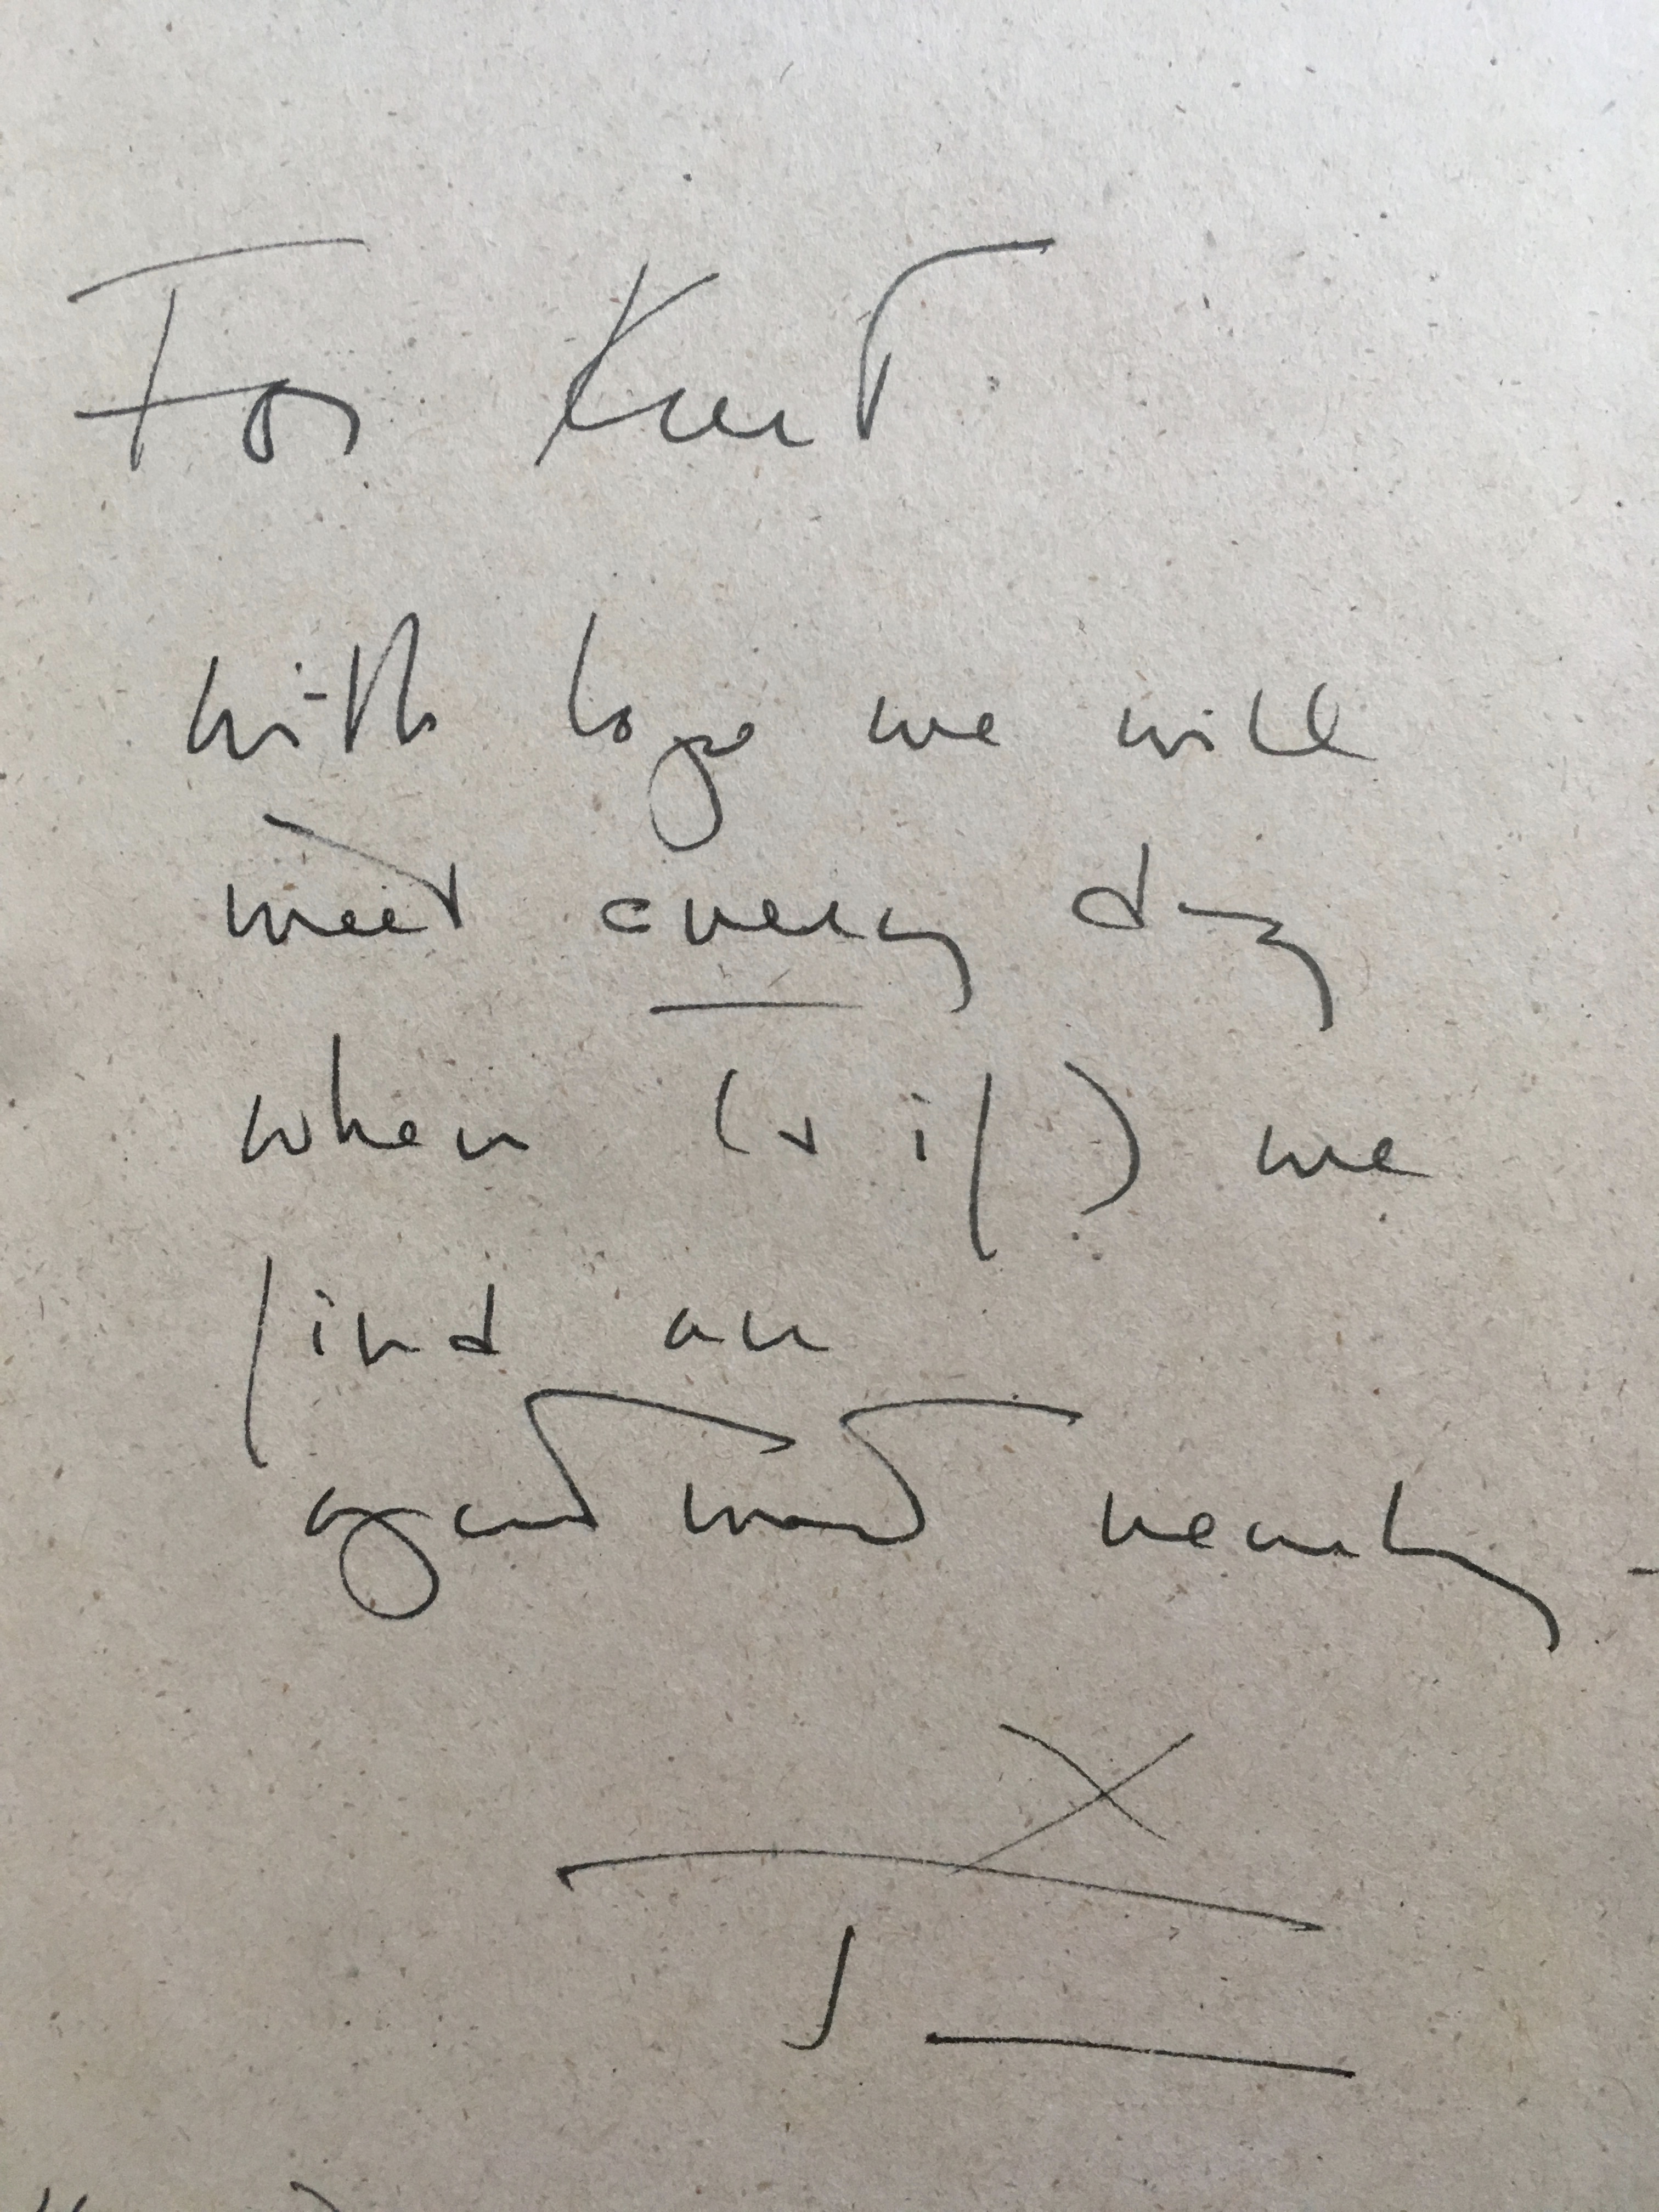 For Kurt
with hope we will
meet every day
when (& if) we
find an
apartment nearby -
X
J